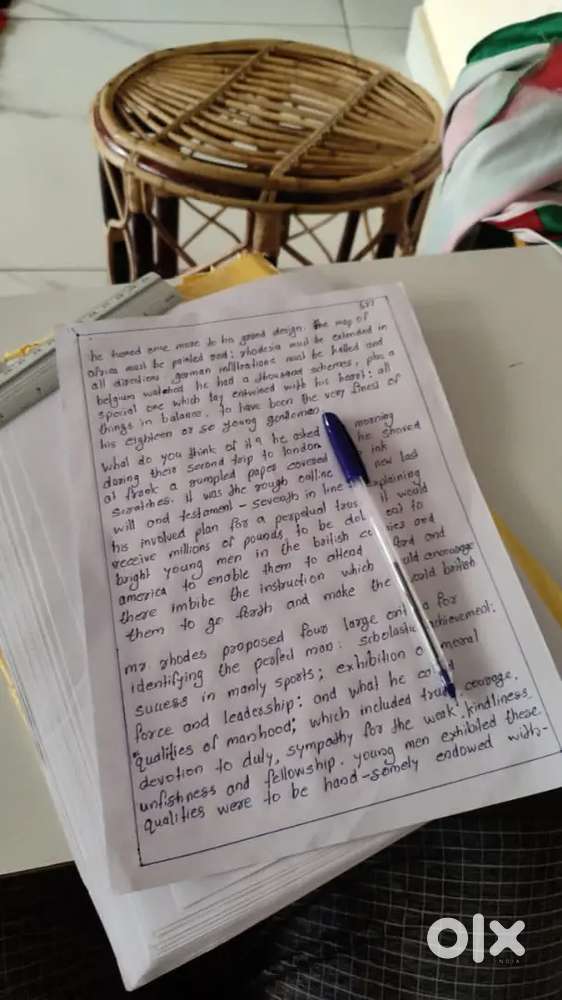 he turned once more to his grand design. The map of
africa must be painted red; rhodesia must be extended in
all directions german infiltrations must be halted and
belgium watched he had a thousand schemes, plus a
special one which lay entwined with his heart: all
things in balance. To have been the very finest of
his eighteen or so young gentlemen
What do you think of it? he asked morning
during their second trip to london he shoved
at frank a rumpled paper covered ink
scratches. it was the rough new last
will and testament - seventh in line explaining
his involved plan for a perpetual it would
receive millions of pounds, to be to
bright young men in the british and
america to enable them to attend and
there imbibe the instruction which
them to go forth and make the british
mr. rhodes proposed four large for
identifying the perfect man: scholastic achievement;
sucess in manly sports; exhibition moral
force and leadership: and what he
qualities of manhood; which included courage,
devotion to duty, sympathy for the weak, kindliness
unfishness and fellowship. young men exhibited these
qualities were to be hand-somely endowed with-
olx
INDIA